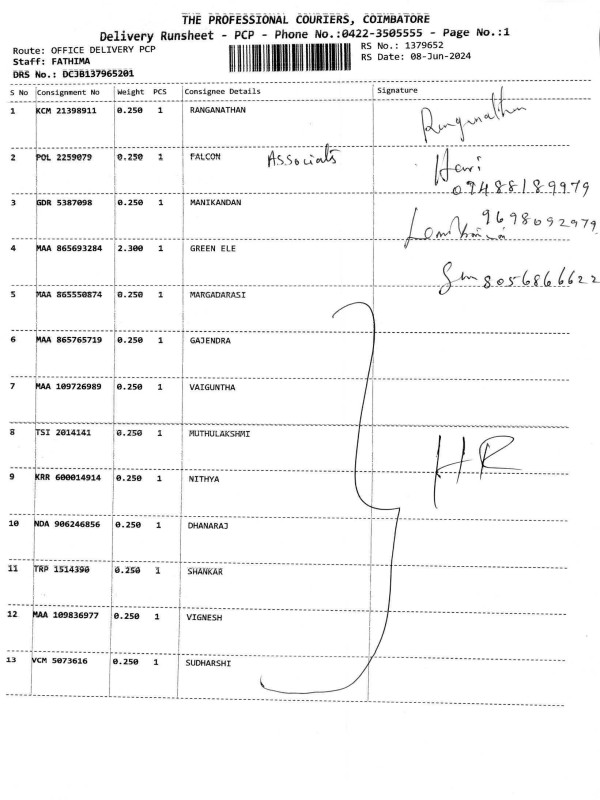 THE PROFESSIONAL COURIERS, COIMBATORE
Delivery Runsheet - PCP - Phone No.:0422-3505555 - Page No.:1
Route: OFFICE DELIVERY PCP
RS No.: 1379652
Staff: FATHIMA
RS Date: 08-Jun-2024
DRS No.: DCJB137965201
S No Consignment No Weight PCS Consignee Details Signature
1 KCM 21398911 0.250 1 RANGANATHAN Ranganathan
2 POL 2259079 0.250 1 FALCON Associats Hari
09488189979
3 GDR 5387098 0.250 1 MANIKANDAN 9698092979
4 MAA 865693284 2.300 1 GREEN ELE 8056866622
5 MAA 865550874 0.250 1 MARGADARASI
6 MAA 865765719 0.250 1 GAJENDRA
7 MAA 109726989 0.250 1 VAIGUNTHA
8 TSI 2014141 0.250 1 MUTHULAKSHMI HR
9 KRR 600014914 0.250 1 NITHYA
10 NDA 906246856 0.250 1 DHANARAJ
11 TRP 1514390 0.250 1 SHANKAR
12 MAA 109836977 0.250 1 VIGNESH
13 VCM 5073616 0.250 1 SUDHARSHI